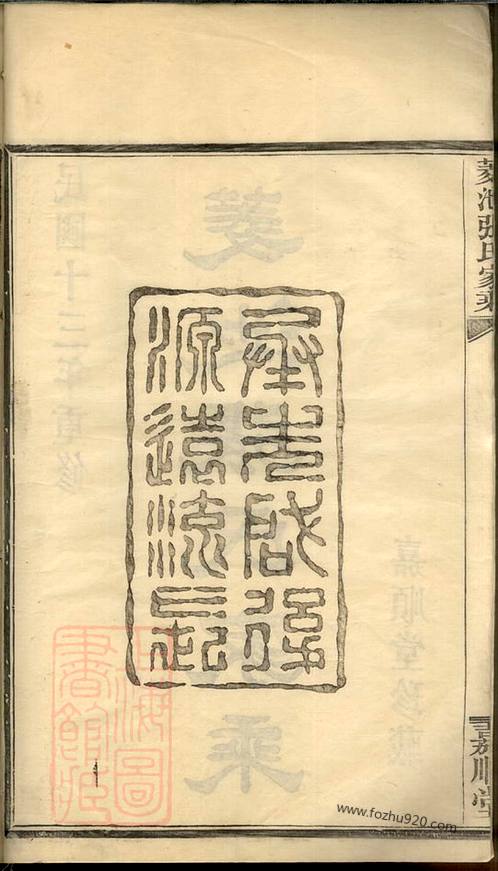 菱池張氏家乘
嘉順堂
承先啟後
源遠流長
嘉順堂珍藏
民國十三年重修
上海圖
書館藏
www.fozhu920.com